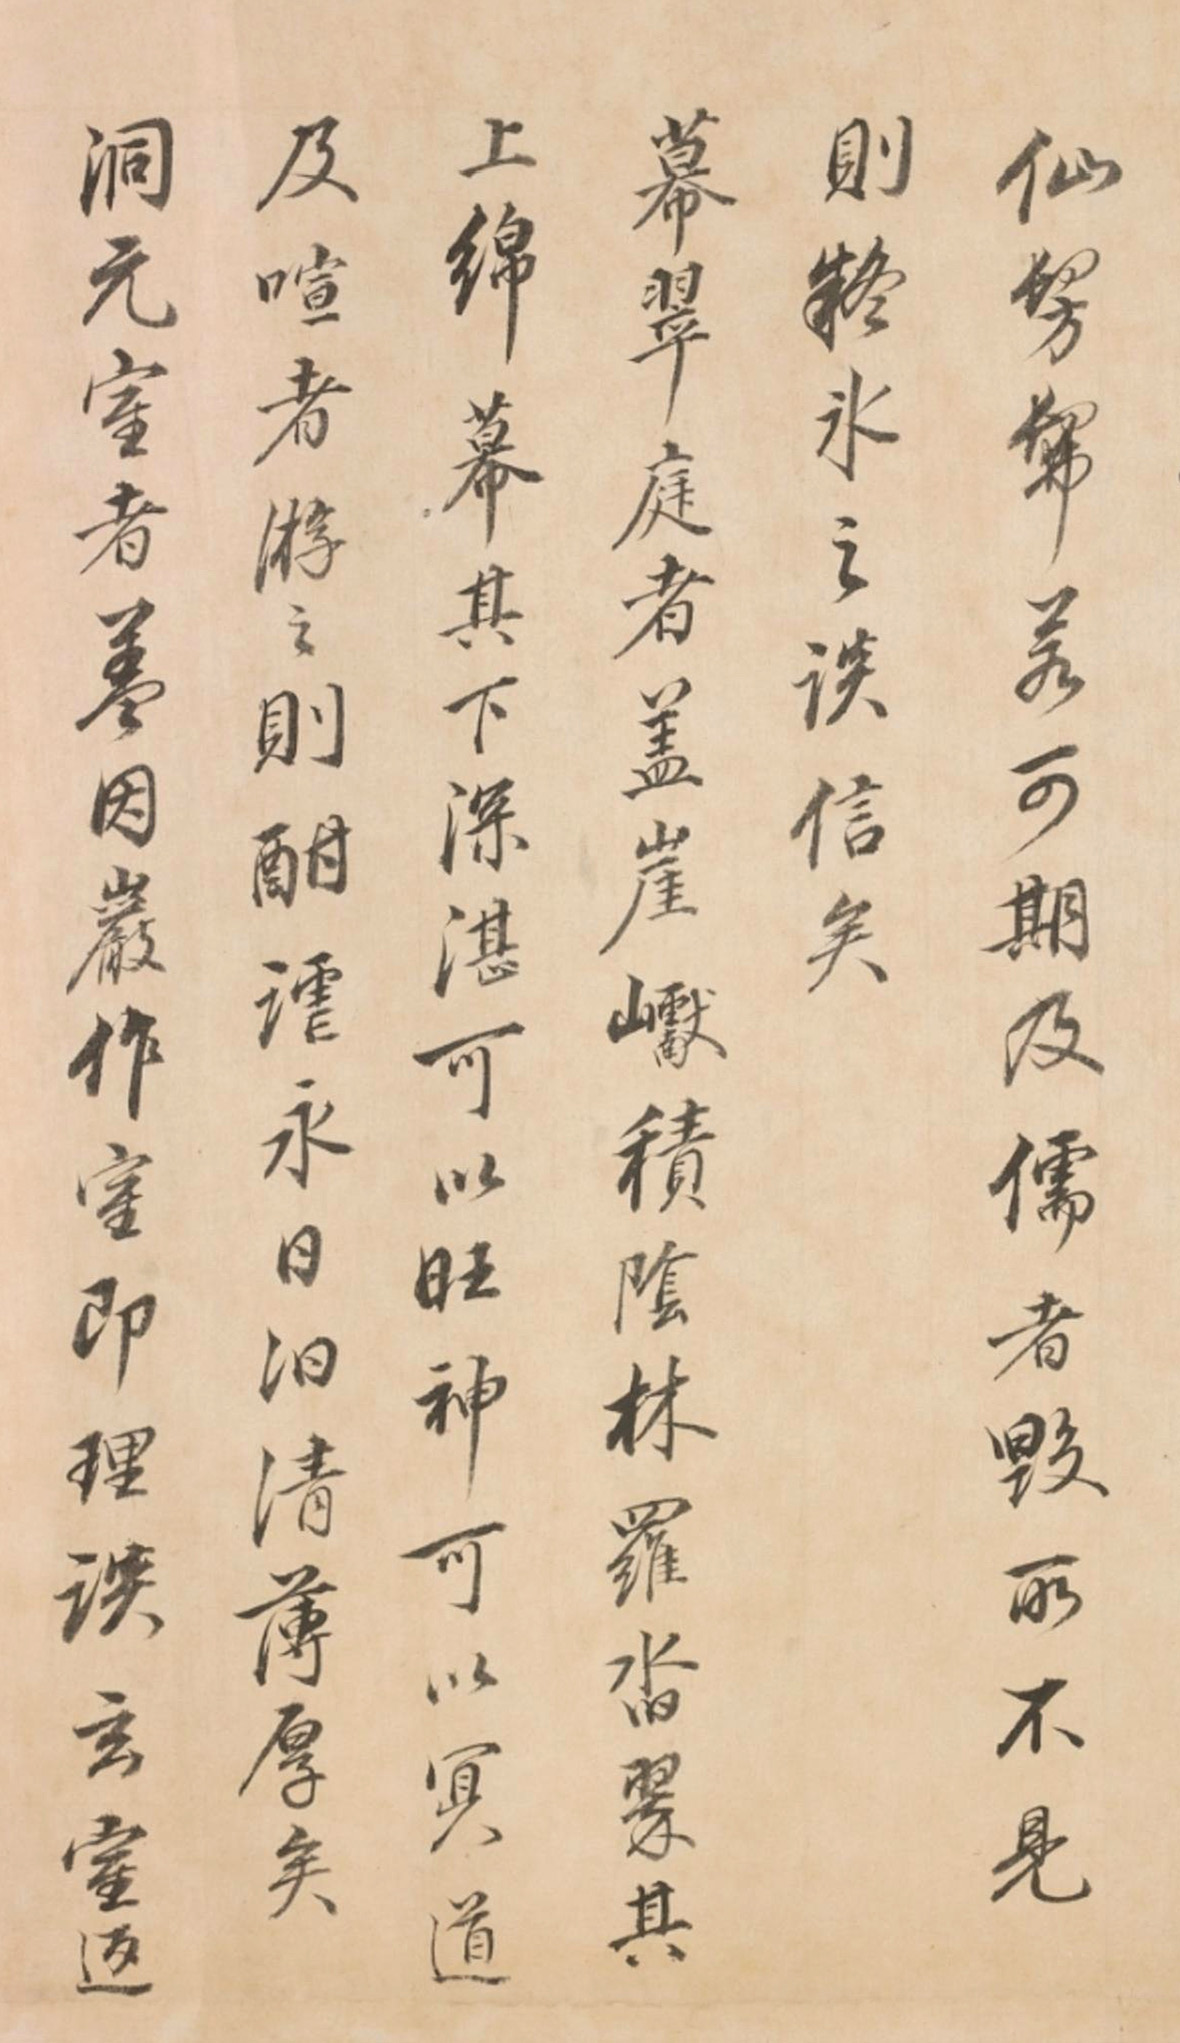 仙髣髴若可期及儒者毀所不見
則黏氷之談信矣
幕翠庭者盖崖巘積陰林羅沓翠其
上綿幕其下深湛可以旺神可以冥道
及喧者游之則酣謔永日汩清薄厚矣
洞元室者盖因巖作室即理談玄室返